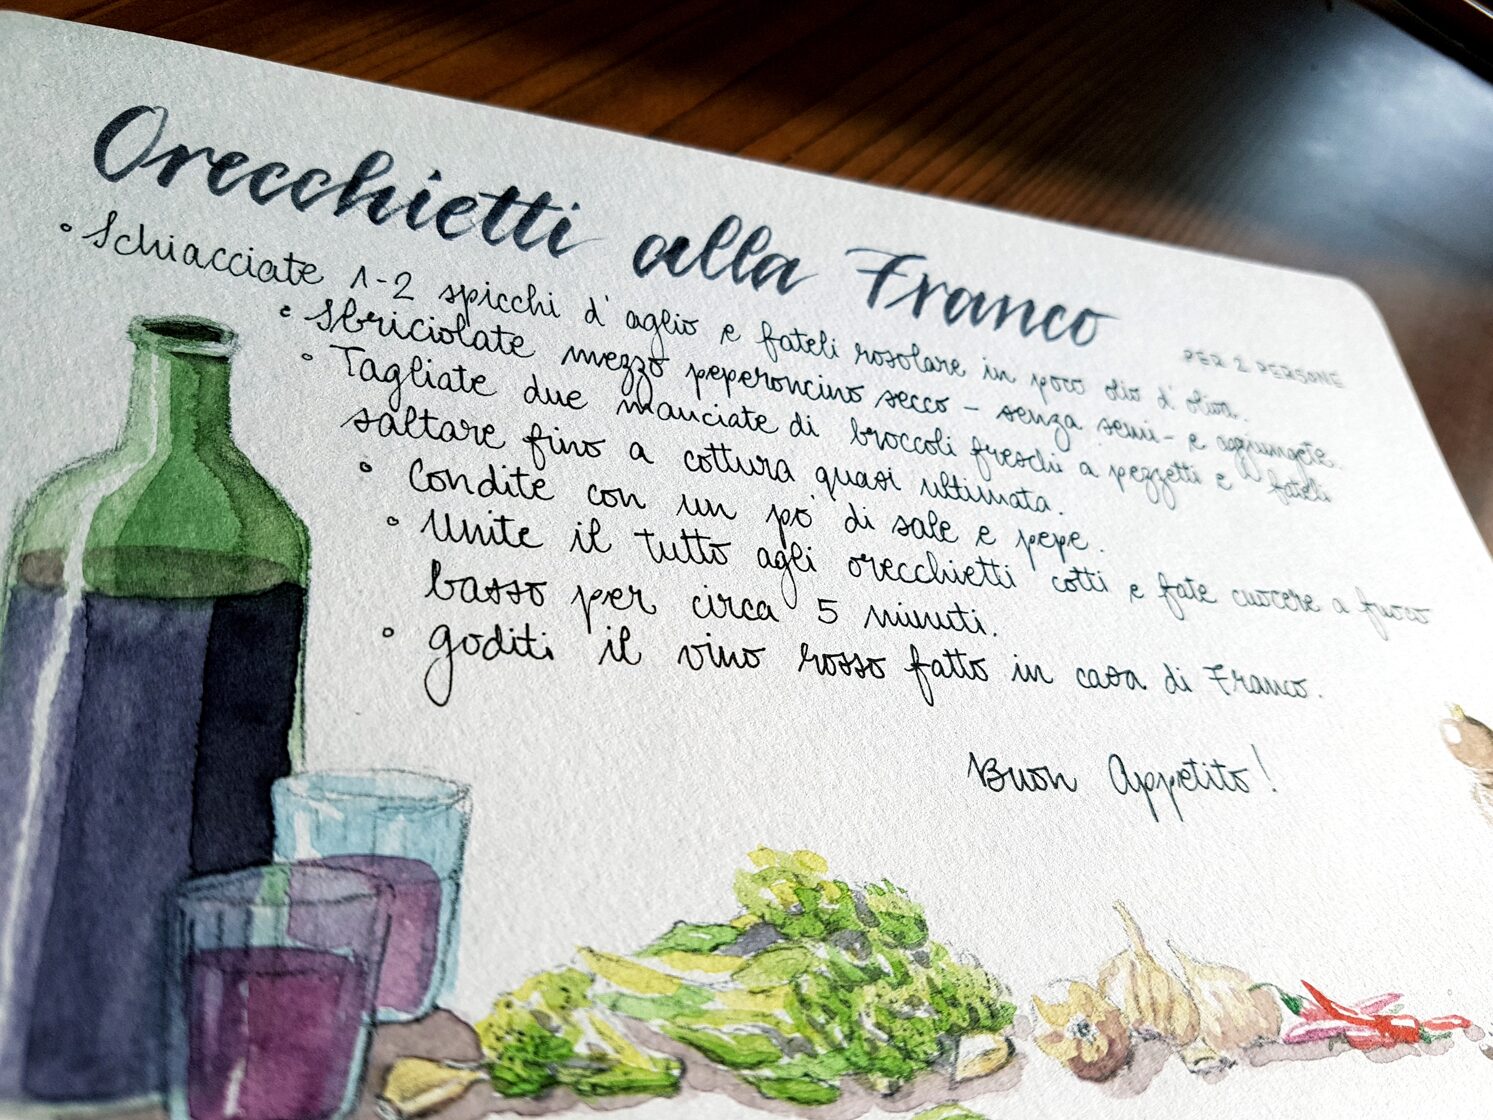 Orecchietti alla Franco
PER 2 PERSONE
• Schiacciate 1-2 spicchi d'aglio e fateli rosolare in poco olio d'oliva.
• Sbriciolate mezzo peperoncino secco - senza semi - e aggiungete.
• Tagliate due manciate di broccoli freschi a pezzetti e fateli
saltare fino a cottura quasi ultimata.
• Condite con un pò di sale e pepe.
• Unite il tutto agli orecchietti cotti e fate cuocere a fuoco
basso per circa 5 minuti.
• goditi il vino rosso fatto in casa di Franco.
Buon Appetito!